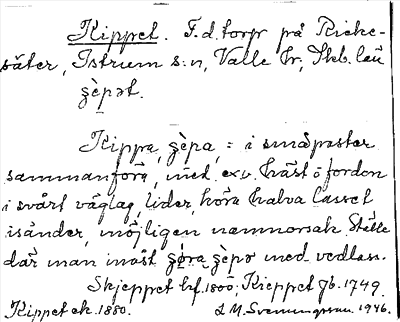 Kippet. F.d. torp på Ricke-
säter, Istrum s:n, Valle hr, Skb. län
ʒèpət.
Kippa, ʒèpa, = i småposter
sammanföra, med ex.v. häst o fordon
i svårt väglag, lider, köra halva lasset
isänder, möjligen namnorsak. Ställe
där man måst ʒöra ʒèpə med vedlass.
Skjeppet hf. 1800; Kieppet gb. 1749.
Kippet ek. 1880. L M. Svenungsson 1946.